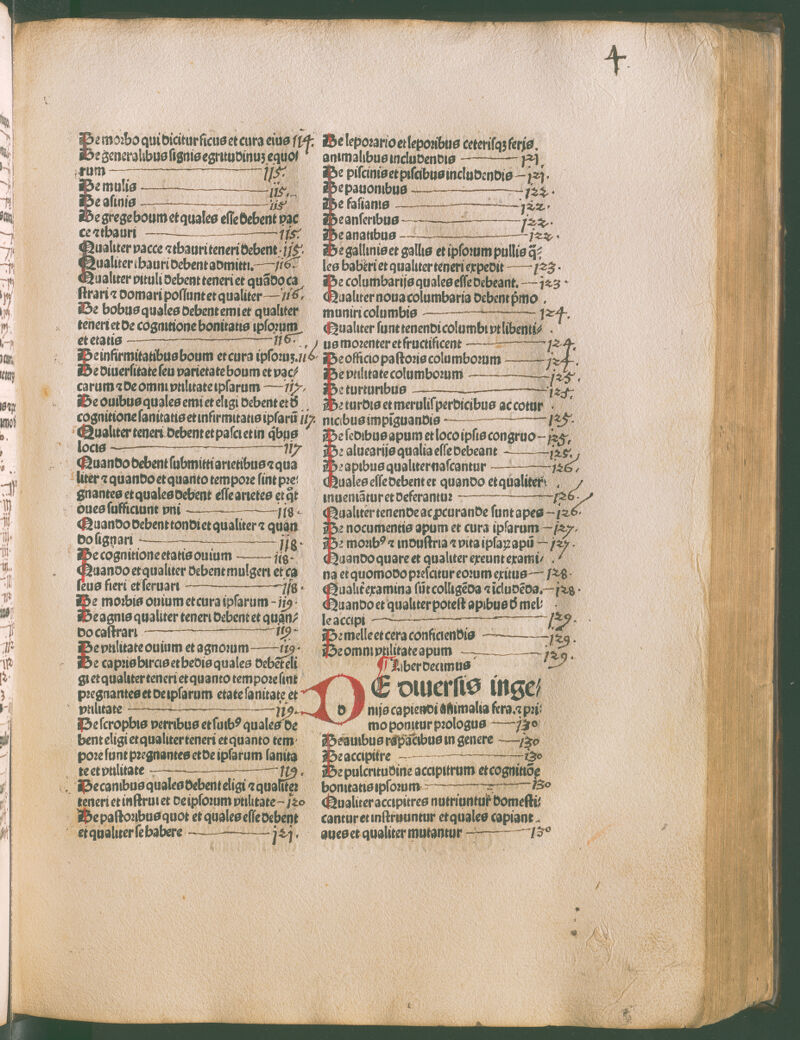 4
De morbo qui dicitur ficus et cura eius 114.
De generalibus signis egritudinuʒ equoꝛ
rum 115.
De mulis 115.
De asinis 115
De grege boum et quales esse debent vac
ce ⁊ thauri 115.
Qualiter vacce ⁊ thauri teneri debent. 115.
Qualiter thauri debent admitti. 116.
Qualiter vituli debent teneri et quãdo ca
strari ⁊ domari possunt et qualiter 116.
De bobus quales debent emi et qualiter
teneri et de cognitione bonitatis ipsorum
et etatis 116.
De infirmitatibus boum et cura ipsoruʒ. 116
De diuersitate seu varietate boum et vac⸗
carum ⁊ de omni vtilitate ipsarum 117.
De ouibus quales emi et eligi debent et d̄
cognitione sanitatis et infirmitatis ipsarũ 117.
Qualiter teneri debent et pasci et in q̇bus
locis 117
Quando debent submitti arietibus ⁊ qua
liter ⁊ quando et quanto tempore sint pre⸗
gnantes et quales debent esse arietes et q̄t
oues sufficiunt vni 118.
Quando debent tondi et qualiter ⁊ quan
do signari 118.
De cognitione etatis ouium 118.
Quando et qualiter debent mulgeri et ca
seus fieri et seruari 118.
De morbis ouium et cura ipsarum 119.
De agnis qualiter teneri debent et quan⸗
do castrari 119.
De vtilitate ouium et agnorum 119.
De capris hircis et hedis quales debēt eli
gi et qualiter teneri et quanto tempore sint
pregnantes et de ipsarum etate sanitate et
vtilitate 119.
De scrophis verribus et suibꝰ quales de
bent eligi et qualiter teneri et quanto tem
pore sunt pregnantes et de ipsarum sanita
te et vtilitate 119.
De canibus quales debent eligi ⁊ qualiter
teneri et instrui et de ipsorum vtilitate 120
De pastoribus quot et quales esse debent
et qualiter se habere 121.
De leporario et leporibus ceterisqʒ feris
animalibus includendis 121.
De piscinis et piscibus includendis 121.
De pauonibus 122.
De fasianis 122.
De anseribus 122.
De anatibus 122.
De gallinis et gallis et ipsorum pullis q̄⸗
les haberi et qualiter teneri expedit 123.
De columbarijs quales esse debeant. 123.
Qualiter noua columbaria debent p̄mo
muniri columbis 124.
Qualiter sunt tenendi columbi vt libenti⸗
us morenter et fructificent 124.
De officio pastoris columborum 124.
De vtilitate columborum 125.
De turturibus 125.
De turdis et merulis perdicibus ac cotur
nicibus impiguandis 125.
De sedibus apum et loco ipsis congruo 125.
De aluearijs qualia esse debeant 125.
De apibus qualiter nascantur 126.
Quales esse debent et quando et qualiter
inueniãtur et deferantur 126.
Qualiter tenende ac ꝓcurande sunt apes 126.
De nocumentis apum et cura ipsarum 127.
De moribꝰ ⁊ industria ⁊ vita ipsaꝝ apũ 127.
Quando quare et qualiter exeunt exami⸗
na et quomodo prescitur eorum exitus 128.
Qualiť examina sũt colligēda ⁊ ĩcludēda. 128.
Quando et qualiter potest apibus d̄ mel⸗
le accipi 129.
De melle et cera conficiendis 129.
De omni vtilitate apum 129.
¶ Liber decimus
DE diuersis inge⸗
nijs capiendi animalia fera. ⁊ pri⸗
mo ponitur prologus 130
De auibus rapacibus in genere 130
De accipitre 130
De pulcritudine accipitrum et cognitiōe
bonitatis ipsorum 130
Qualiter accipitres nutriuntur domesti⸗
cantur et instruuntur et quales capiant
aues et qualiter mutantur 130